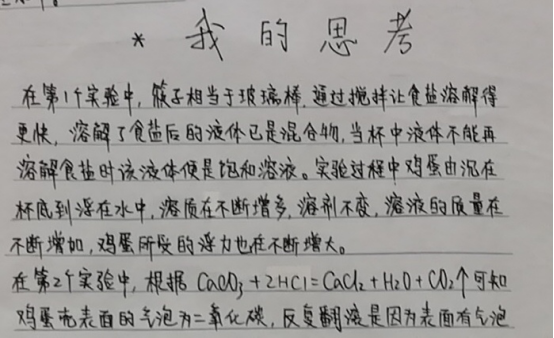 * 我的思考
在第1个实验中，筷子相当于玻璃棒，通过搅拌让食盐溶解得
更快，溶解了食盐后的液体已是混合物，当杯中液体不能再
溶解食盐时该液体便是饱和溶液。实验过程中鸡蛋由沉在
杯底到浮在水中，溶质在不断增多，溶剂不变，溶液的质量在
不断增加，鸡蛋所受的浮力也在不断增大。
在第2个实验中，根据 CaCO₃+2HCl=CaCl₂+H₂O+CO₂↑可知
鸡蛋壳表面的气泡为二氧化碳，反复翻滚是因为表面有气泡